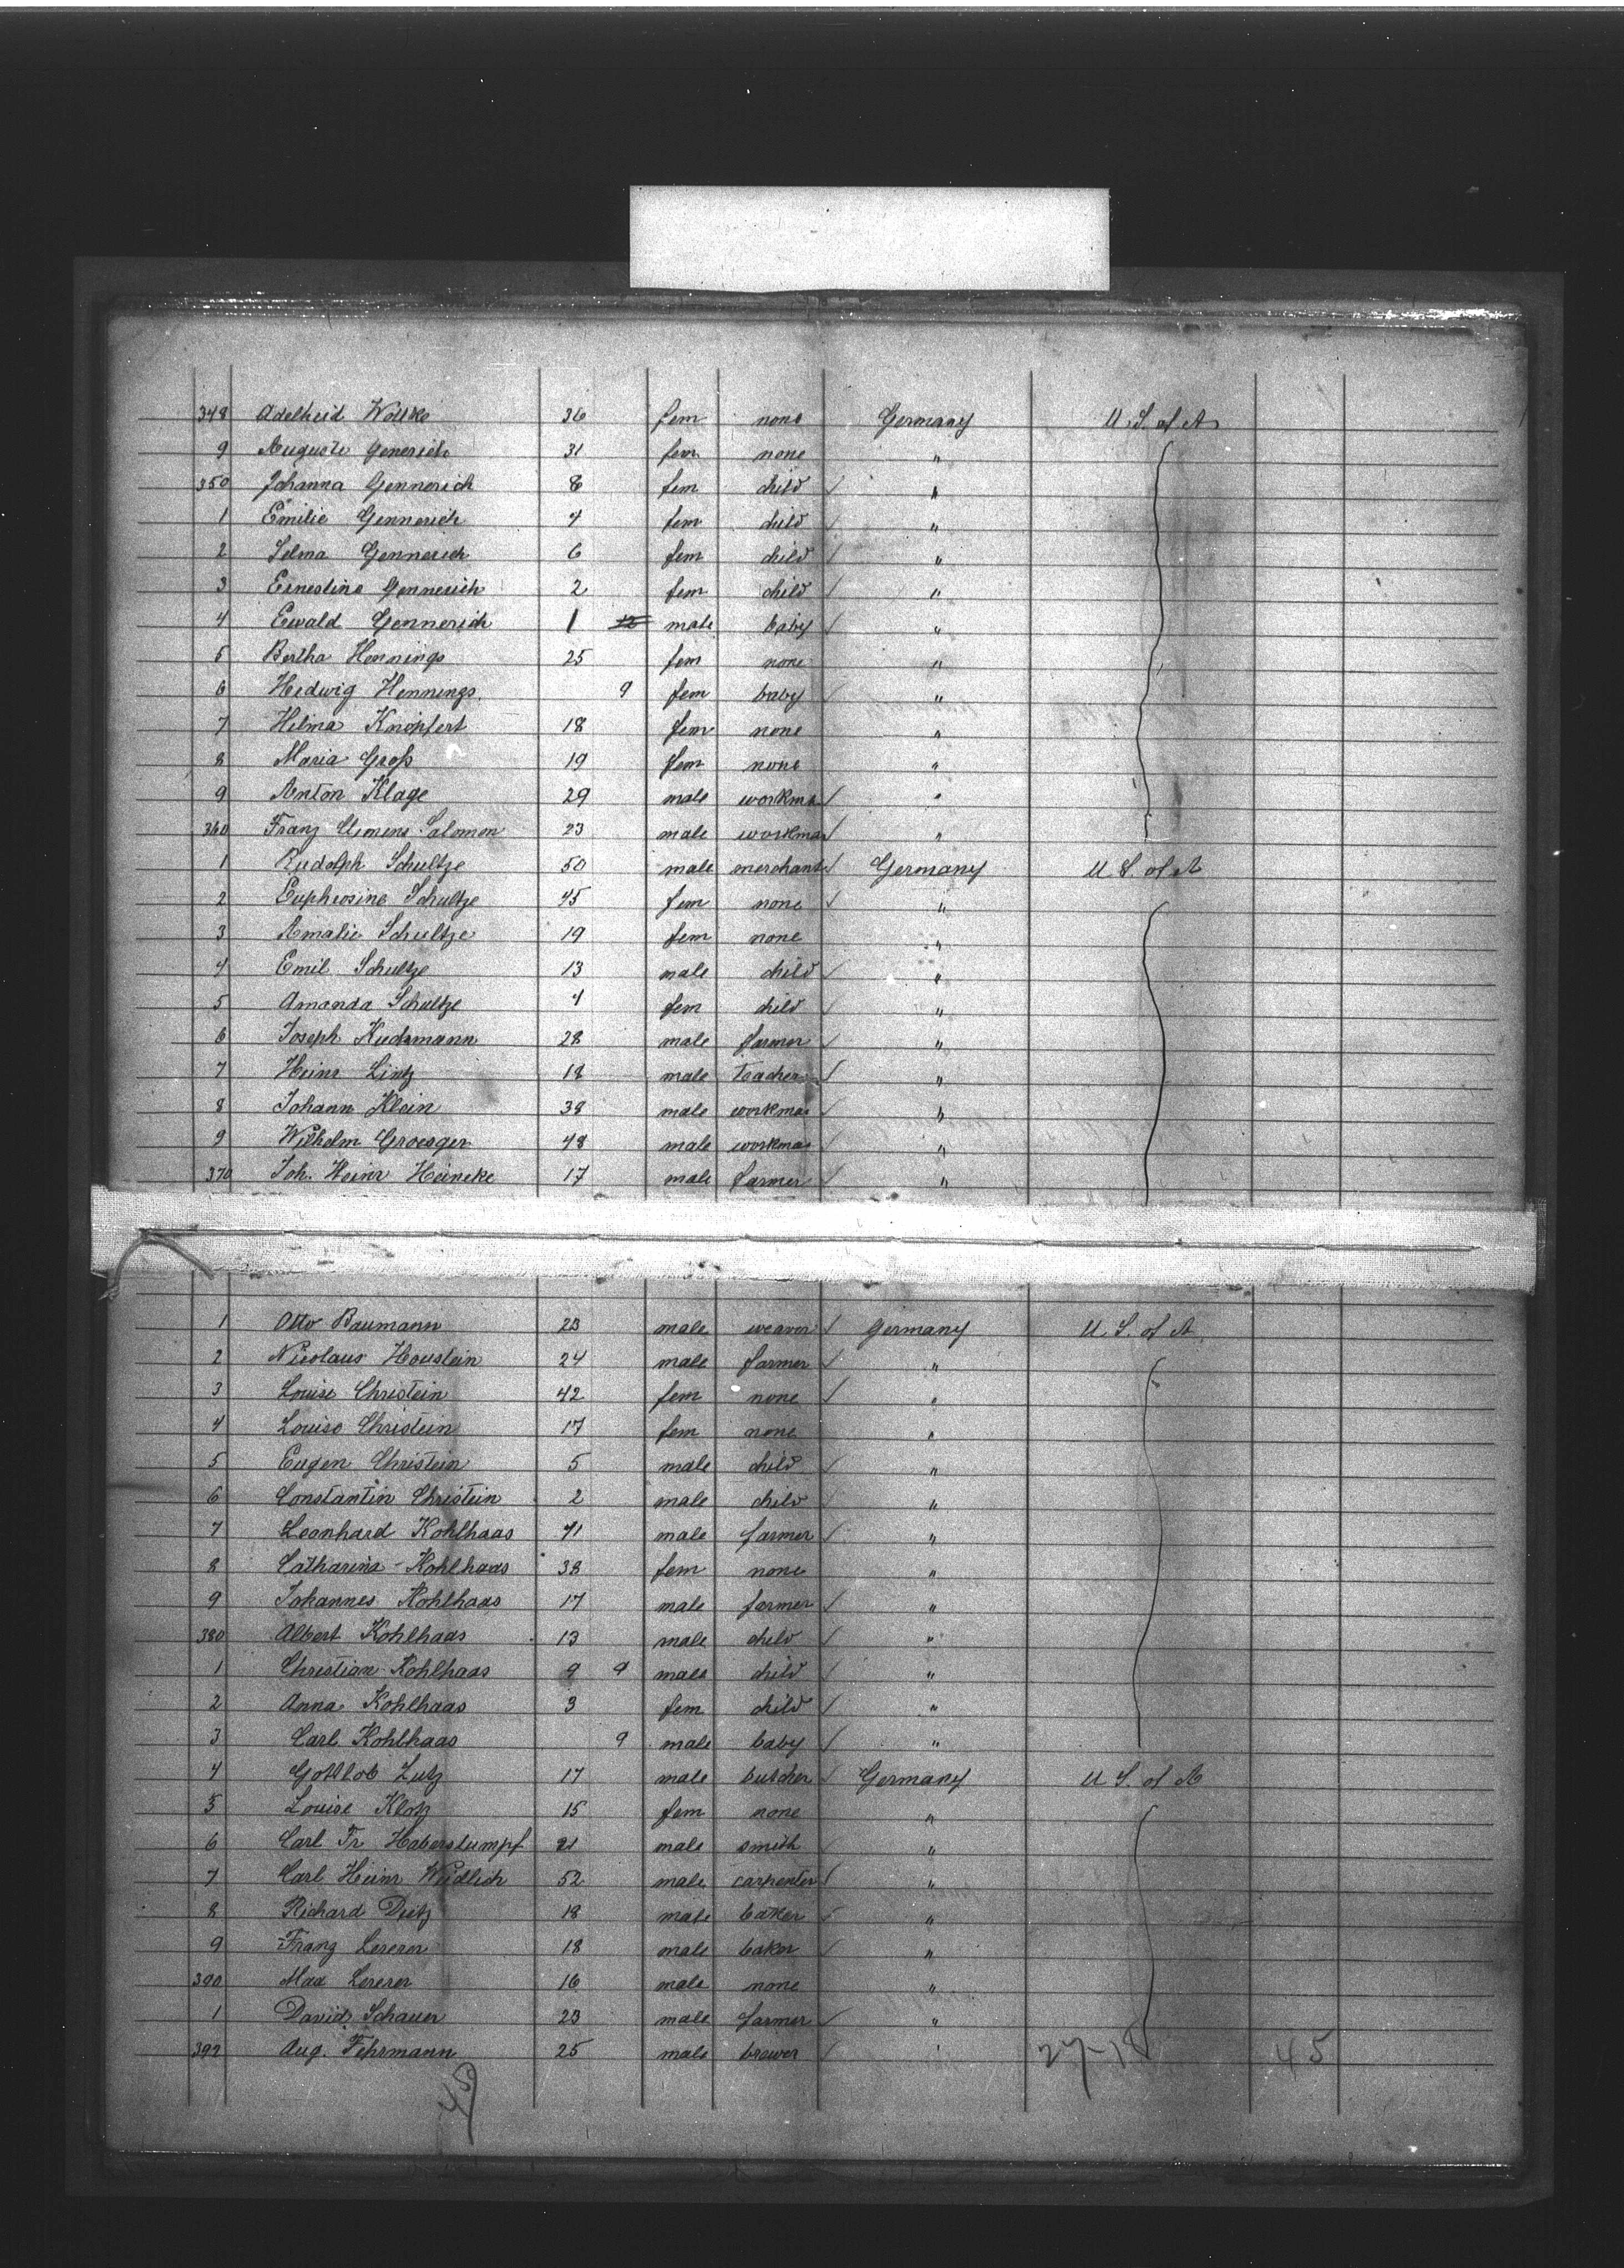 348 Adelheid Wottke 36 fem none Germany U. S. of A
9 Auguste Generich 31 fem none "
350 Johanna Gennerich 8 fem child "
1 Emilie Gennerich 4 fem child "
2 Selma Gennerich 6 fem child "
3 Ernestine Gennerich 2 fem child "
4 Ewald Gennerich 1 male baby "
5 Bertha Hennings 25 fem none "
6 Hedwig Hennings 9 fem baby "
7 Helma Knöpfert 18 fem none "
8 Maria Groß 19 fem none "
9 Anton Klage 29 male workman "
360 Franz Clemens Salomon 23 male workman "
1 Rudolph Schultze 50 male merchant Germany U S. of A
2 Euphrosine Schultze 45 fem none "
3 Amalie Schultze 19 fem none "
4 Emil Schultze 13 male child "
5 Amanda Schultze 4 fem child "
6 Joseph 28 male farmer "
7 Heinr Lintz 18 male teacher "
8 Johann Klein 38 male workman "
9 Wilhelm Groesger 48 male workman "
370 Joh. Heinr Heineke 17 male farmer "
1 Otto Baumann 23 male weaver Germany U. S. of A.
2 Nicolaus Houstein 24 male farmer "
3 Louise Christein 42 fem none "
4 Louise Christein 17 fem none "
5 Eugen Christein 5 male child "
6 Constantin Christein 2 male child "
7 Leonhard Kohlhaas 41 male farmer "
8 Catharina Kohlhaas 38 fem none "
9 Johannes Kohlhaas 17 male farmer "
380 Albert Kohlhaas 13 male child "
1 Christian Kohlhaas 9 9 male child "
2 Anna Kohlhaas 3 fem child "
3 Carl Kohlhaas 9 male baby "
4 Gottlob Lutz 17 male butcher Germany U S. of A
5 Louise Klotz 15 fem none "
6 Carl Fr. Haberstumpf 21 male smith "
7 Carl Heinr Weidlich 52 male carpenter "
8 Richard Dietz 18 male baker "
9 Franz Lererer 18 male baker "
390 Max Lererer 16 male none "
1 David Schauer 23 male farmer "
392 Aug. Fehrmann 25 male brewer " 27-18 45
45